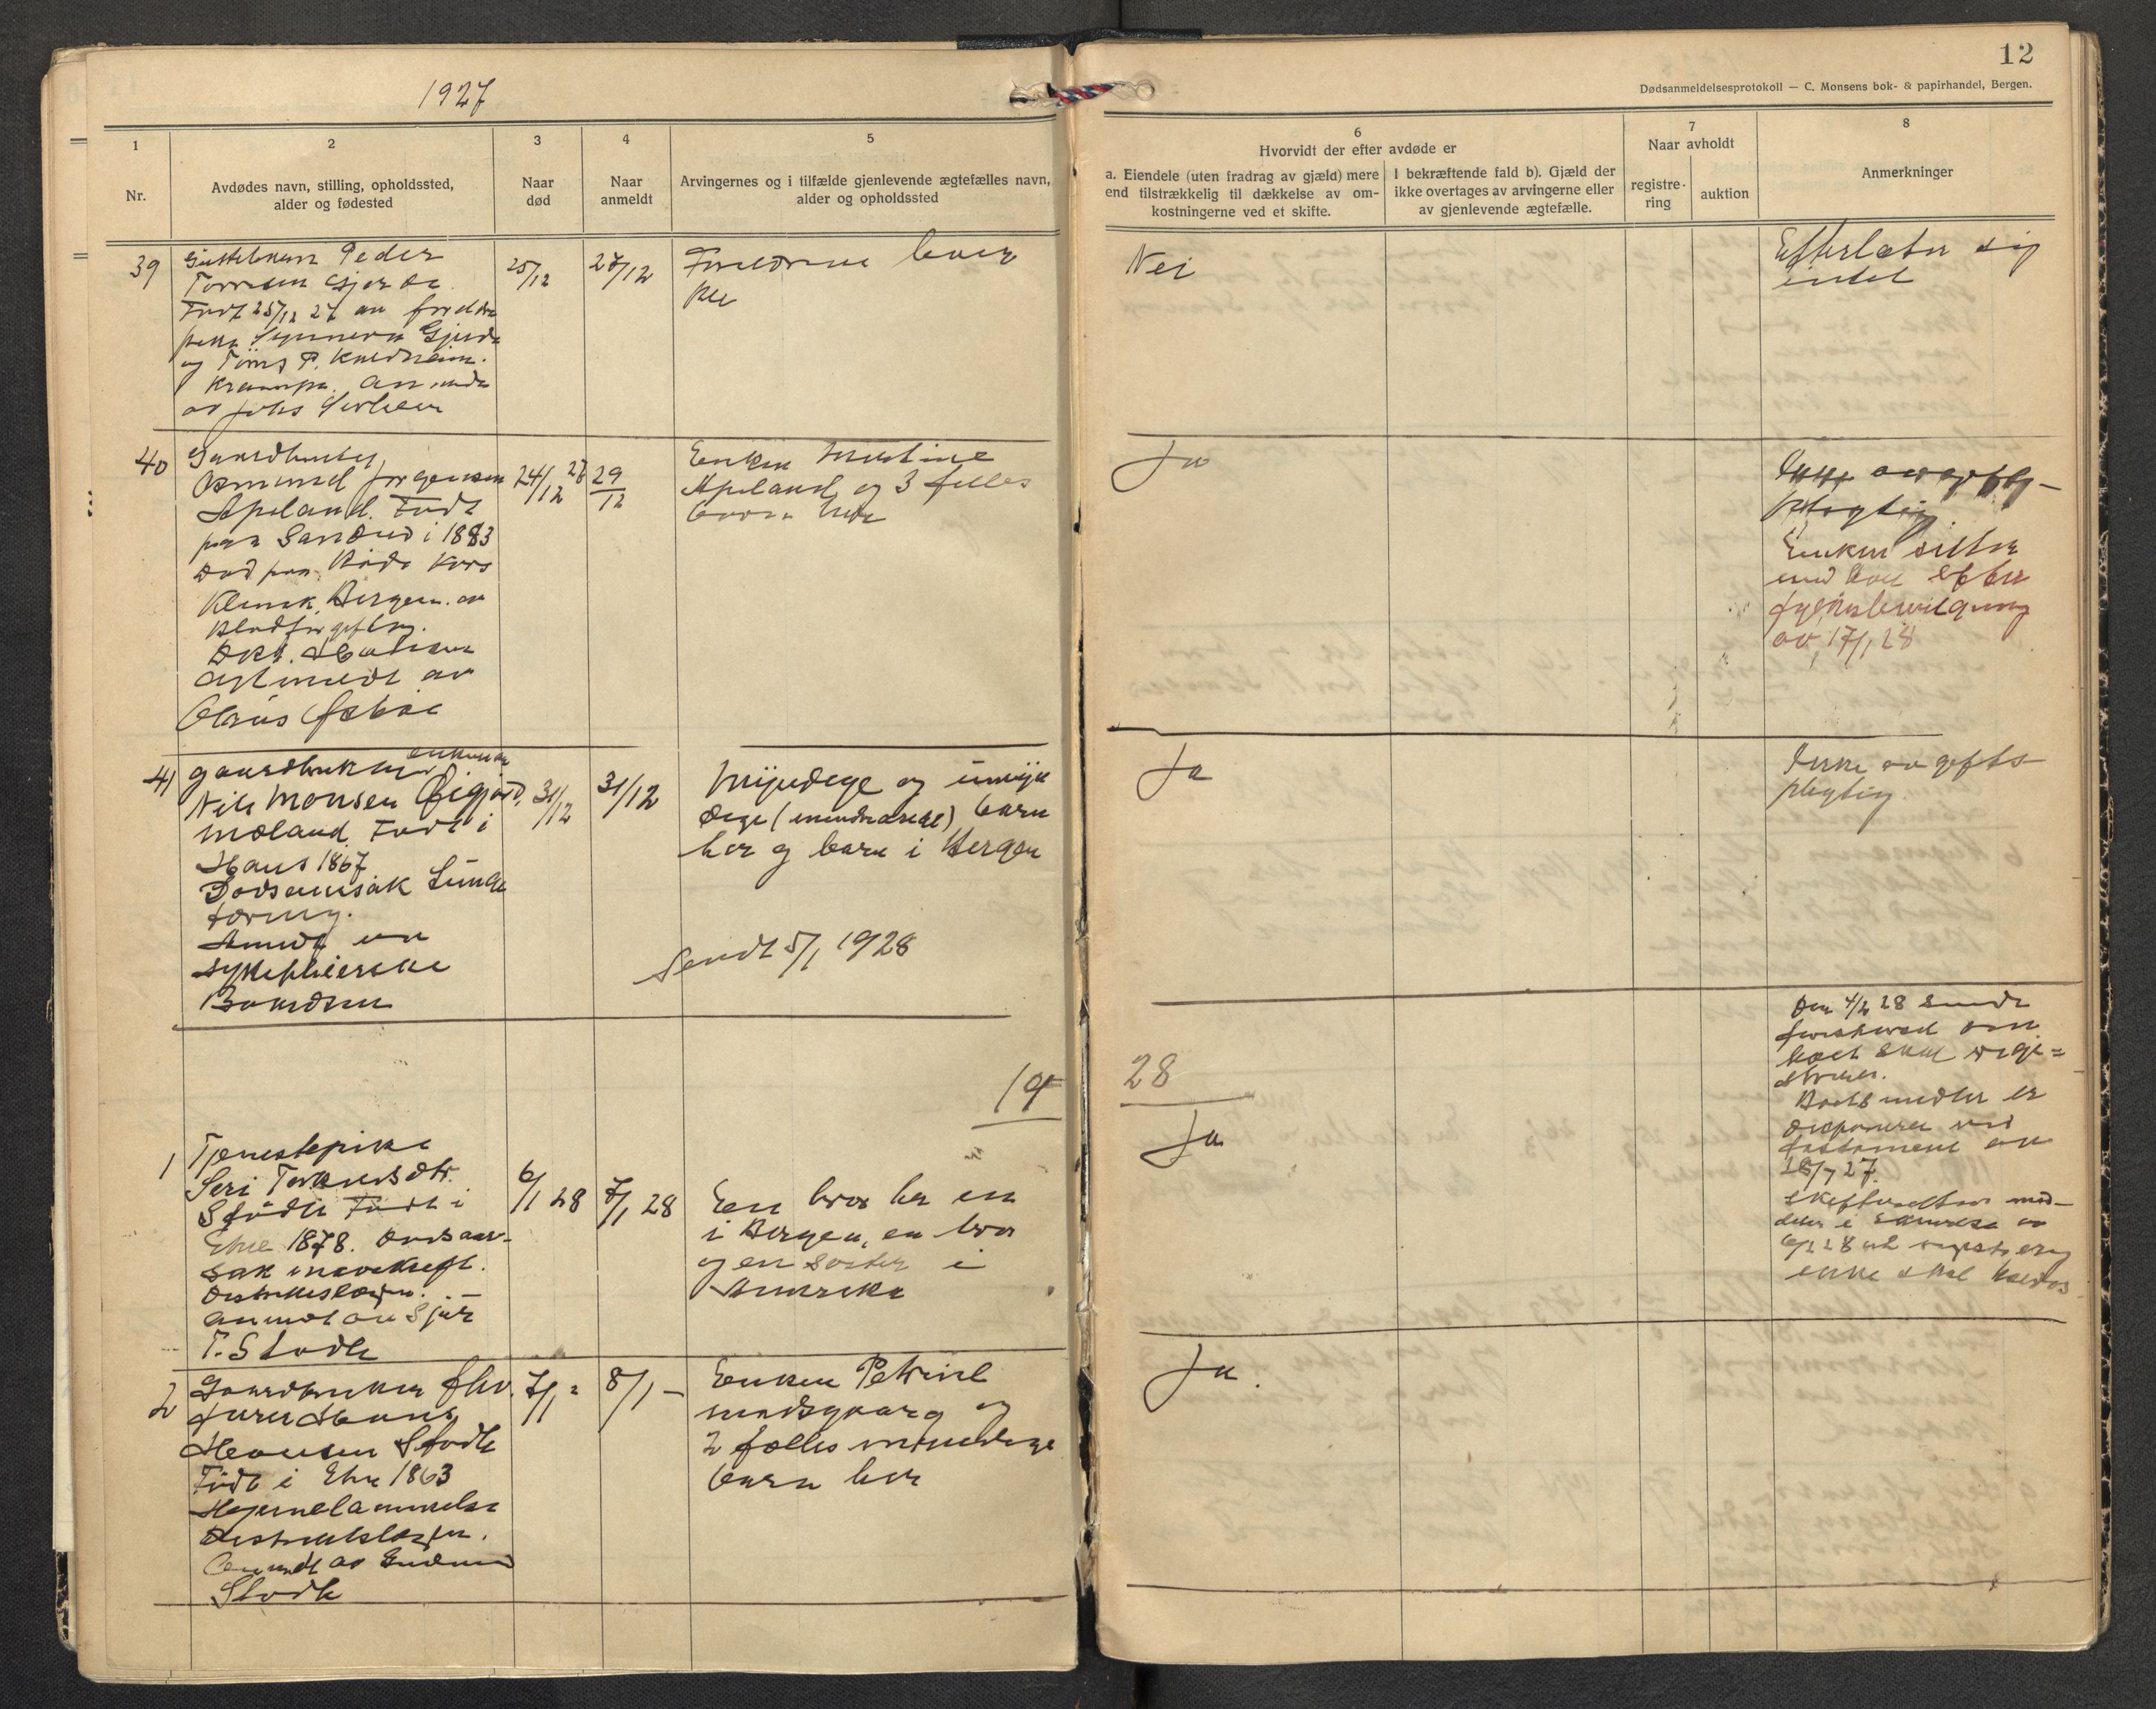 1927
12
Dødsanmeldelsesprotokoll — C. Monsens bok- & papirhandel, Bergen.
1
Nr.
2
Avdødes navn, stilling, opholdssted,
alder og fødested
3
Naar
død
4
Naar
anmeldt
5
Arvingernes og i tilfælde gjenlevende ægtefælles navn,
alder og opholdssted
6
Hvorvidt der efter avdøde er
a. Eiendele (uten fradrag av gjæld) mere
end tilstrækkelig til dækkelse av om-
kostningerne ved et skifte.
I bekræftende fald b). Gjæld der
ikke overtages av arvingerne eller
av gjenlevende ægtefælle.
7
Naar avholdt
registre-
ring
auktion
8
Anmerkninger
39
Peder
Født 25/12 27 av
og P.
av Johs
25/12
27/12
Forældrene lever
Nei
Efterlater sig
intet
40
Gaardbruker
Asmund Jørgensen
Apeland. Født
paa Sandvid i 1883
Død paa Røde Kors
Klinik, Bergen. av
Blodforgiftng.
Anmeldt av
Claus
24/12 27
29/12
Enken
Apeland og 3 felles
barn her
Ja
Ikke avgifts-
pligtig
Enken sitter
med boet efter
fylkesbevilgning
av 17/1 28
41
Gaardbruker enkemand
Nils Monsen
Mæland. Født i
Haus 1867
Dødsaarsak Lunge
tæring.
Anmdt av
sykepleierske
Baardsen
31/12
31/12
Myndige og umyn
dige (mindreaarige) barn
her og barn i Bergen
Sendt 5/1 1928
Ja
Ikke avgifts
pligtig.
19
28
1
Tjenestepike
Siri Torkelsdtr.
Stødle Født i
Etne 1878. Dødsaar-
sak mavekreft.
Distriktslægen. -
Anmdt av Sjur
T. Stødle
6/1 28
7/1 28
En bror her en
i Bergen, en bror
og en søster i
Amerika
Ja
Den 4/2 28 sendt
forespørsel om
boet skal regi=
streres.
Boets midler er
disponeret ved
testament av
18/7 27.
Skifteretten med-
deler i skrivelse av
6/2 28 at registrering
ikke skal holdes
2
Gaardbruker fhv.
Hans
Hansen Stødle
Født i Etne 1863
Hjernelammelse
Distriktslægen.
Anmdt av Gudmund
Stødle
7/1 =
8/1 -
Enken Petrine
og
2 fælles myndige
barn her
Ja.